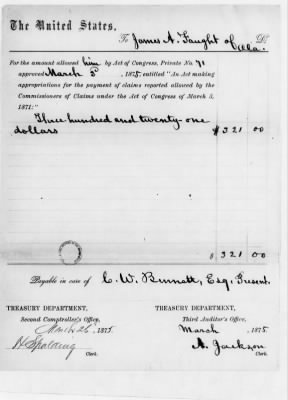 The United States,
To James A. Faught of Ala. Dr.
For the amount allowed him by Act of Congress, Private No. 71
approved March 3d 1875, entitled "An Act making
appropriations for the payment of claims reported allowed by the
Commissioners of Claims under the Act of Congress of March 3,
1871:"
Three hundred and twenty-one
dollars $ 321 00
$ 321 00
Payable in care of C. W. Bennett, Esq. Present.
TREASURY DEPARTMENT, TREASURY DEPARTMENT,
Second Comptroller's Office, Third Auditor's Office,
March 26 1875. March , 1875.
H Spalding A. Jackson
Clerk. Clerk.